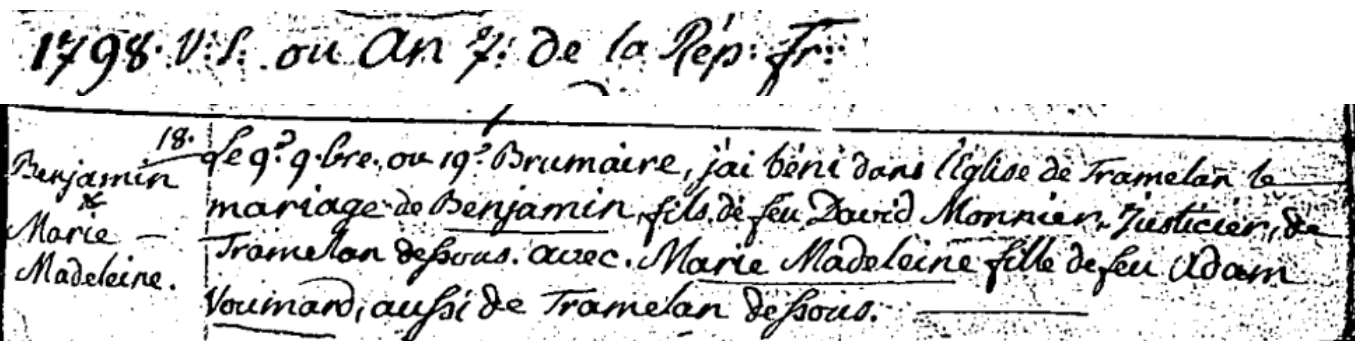 1798. V: S: ou An 7: de la Rép: Fr:
18.
Benjamin
&
Marie
Madeleine.
Le 9.e 9.bre. ou 19.e Brumaire, j'ai béni dans l'Eglise de Tramelan le
mariage de Benjamin, fils de feu David Monnier, Justicier, de
Tramelan dessous. avec. Marie Madeleine fille de feu Adam
Voumard, aussi de Tramelan dessous.